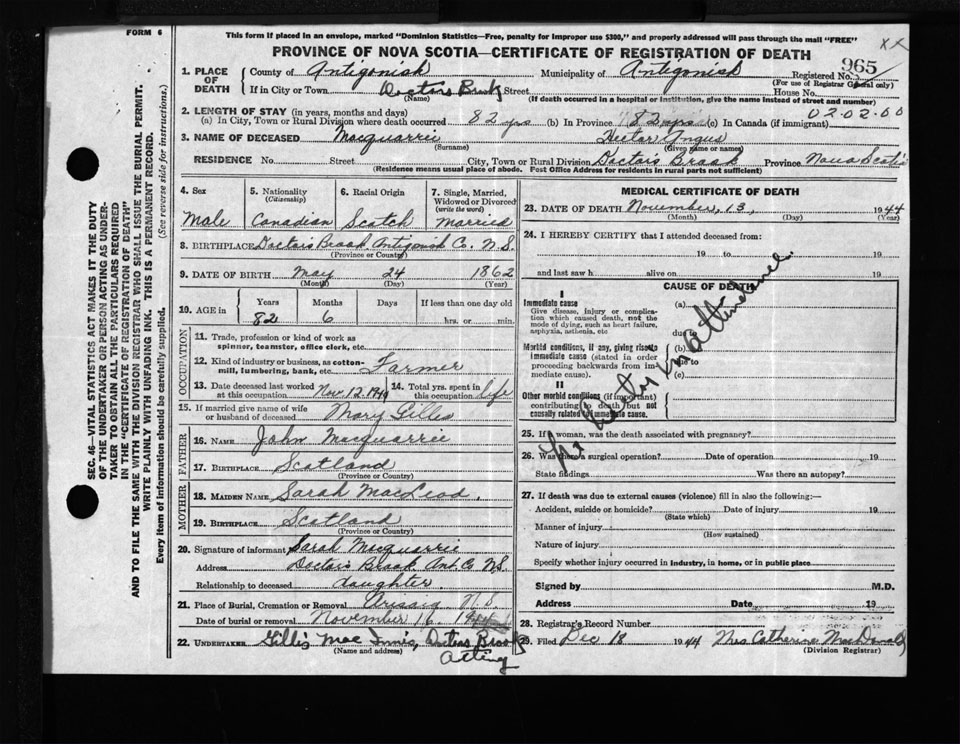 FORM 6
This form if placed in an envelope, marked "Dominion Statistics—Free, penalty for improper use $300," and properly addressed will pass through the mail "FREE"
PROVINCE OF NOVA SCOTIA—CERTIFICATE OF REGISTRATION OF DEATH
1. PLACE OF DEATH
County of Antigonish Municipality of Antigonish Registered No. 965
(For use of Registrar General only)
If in City or Town Doctors Brook Street House No.
(Name) (If death occurred in a hospital or institution, give the name instead of street and number)
2. LENGTH OF STAY (in years, months and days) 02.02.00
(a) In City, Town or Rural Division where death occurred 82 yrs (b) In Province 82 yrs (c) In Canada (if immigrant)
3. NAME OF DECEASED Macquarrie Hector Angus
(Surname) (Given name or names)
RESIDENCE No. Street City, Town or Rural Division Doctors Brook Province Nova Scotia
(Residence means usual place of abode. Post Office Address for residents in rural parts not sufficient)
SEC. 46—VITAL STATISTICS ACT MAKES IT THE DUTY
OF THE UNDERTAKER OR PERSON ACTING AS UNDER-
TAKER TO OBTAIN ALL THE PARTICULARS REQUIRED
IN THE "CERTIFICATE OF REGISTRATION OF DEATH"
AND TO FILE THE SAME WITH THE DIVISION REGISTRAR WHO SHALL ISSUE THE BURIAL PERMIT.
WRITE PLAINLY WITH UNFADING INK. THIS IS A PERMANENT RECORD.
Every item of information should be carefully supplied. (See reverse side for instructions.)
4. Sex
Male
5. Nationality
(Citizenship)
Canadian
6. Racial Origin
Scotch
7. Single, Married, Widowed or Divorced
(write the word)
Married
8. BIRTHPLACE Doctors Brook Antigonish Co. N.S.
(Province or Country)
9. DATE OF BIRTH May 24 1862
(Month) (Day) (Year)
10. AGE in Years Months Days If less than one day old
82 6 hrs. or min.
OCCUPATION
11. Trade, profession or kind of work as
spinner, teamster, office clerk, etc.
12. Kind of industry or business, as cotton-
mill, lumbering, bank, etc. Farmer
13. Date deceased last worked at this occupation Nov. 12. 1944
14. Total yrs. spent in this occupation life
15. If married give name of wife or husband of deceased Mary Gillis
FATHER
16. NAME John Macquarrie
17. BIRTHPLACE Scotland
(Province or Country)
MOTHER
18. MAIDEN NAME Sarah MacLeod.
19. BIRTHPLACE Scotland
(Province or Country)
20. Signature of informant Sarah Macquarrie
Address Doctors Brook Ant. Co. N.S.
Relationship to deceased daughter.
21. Place of Burial, Cremation or Removal Arisaig N.S.
Date of burial or removal November 16. 1944
22. UNDERTAKER Gillis Mac Innis, Doctors Brook
(Name and address) acting
MEDICAL CERTIFICATE OF DEATH
23. DATE OF DEATH November, 13, 1944
(Month) (Day) (Year)
24. I HEREBY CERTIFY that I attended deceased from:
19 to 19
and last saw h alive on 19
CAUSE OF DEATH
I
Immediate cause (a)
Give disease, injury or complica-
tion which caused death, not the
mode of dying, such as heart failure,
asphyxia, asthenia, etc. due to
Morbid conditions, if any, giving rise to (b)
immediate cause (stated in order due to
proceeding backwards from im-
mediate cause). (c)
II
Other morbid conditions (if important)
contributing to death but not
causally related to immediate cause.
25. If a woman, was the death associated with pregnancy?
26. Was there a surgical operation? Date of operation 19
State findings Was there an autopsy?
27. If death was due to external causes (violence) fill in also the following:—
Accident, suicide or homicide? Date of injury 19
(State which)
Manner of injury
(How sustained)
Nature of injury
Specify whether injury occurred in industry, in home, or in public place
Signed by M.D.
Address Date 19
28. Registrar's Record Number
29. Filed Dec 18 1944 Mrs Catherine MacDonald
(Division Registrar)